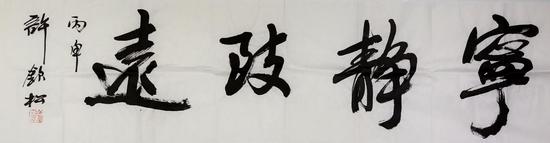 寧靜致遠
丙申
許欽松